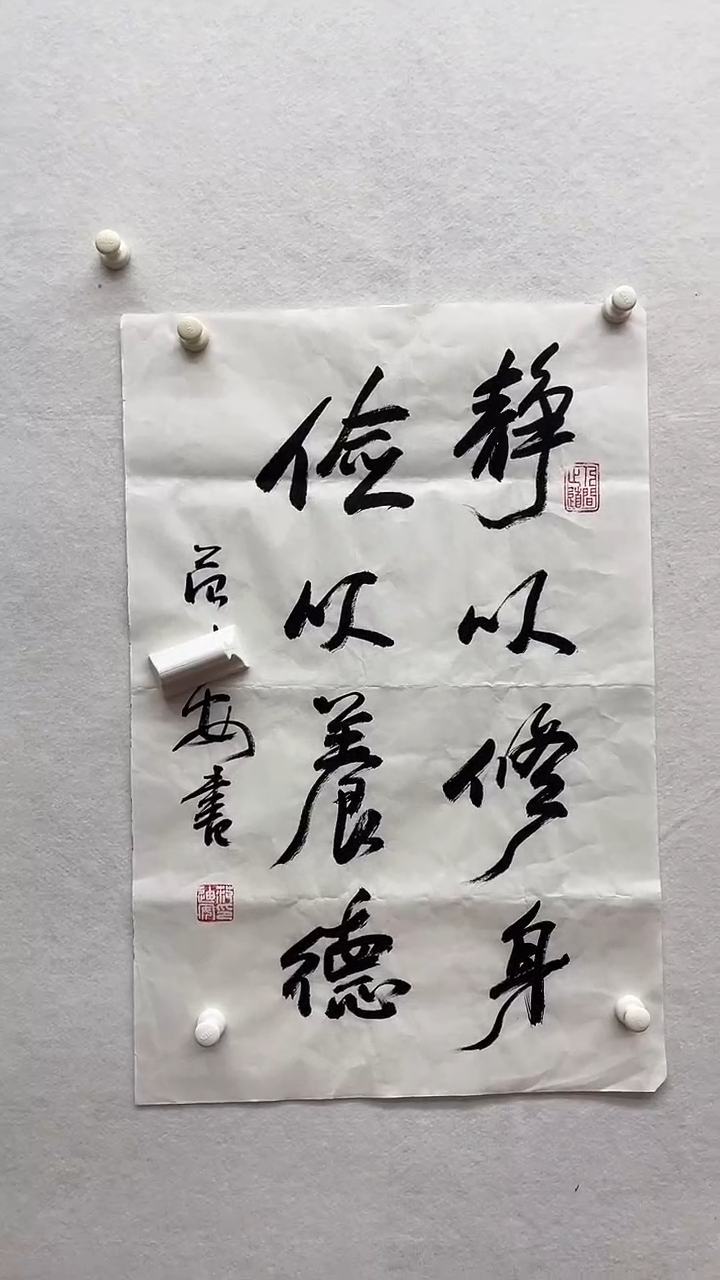 静以修身
俭以養德
安書